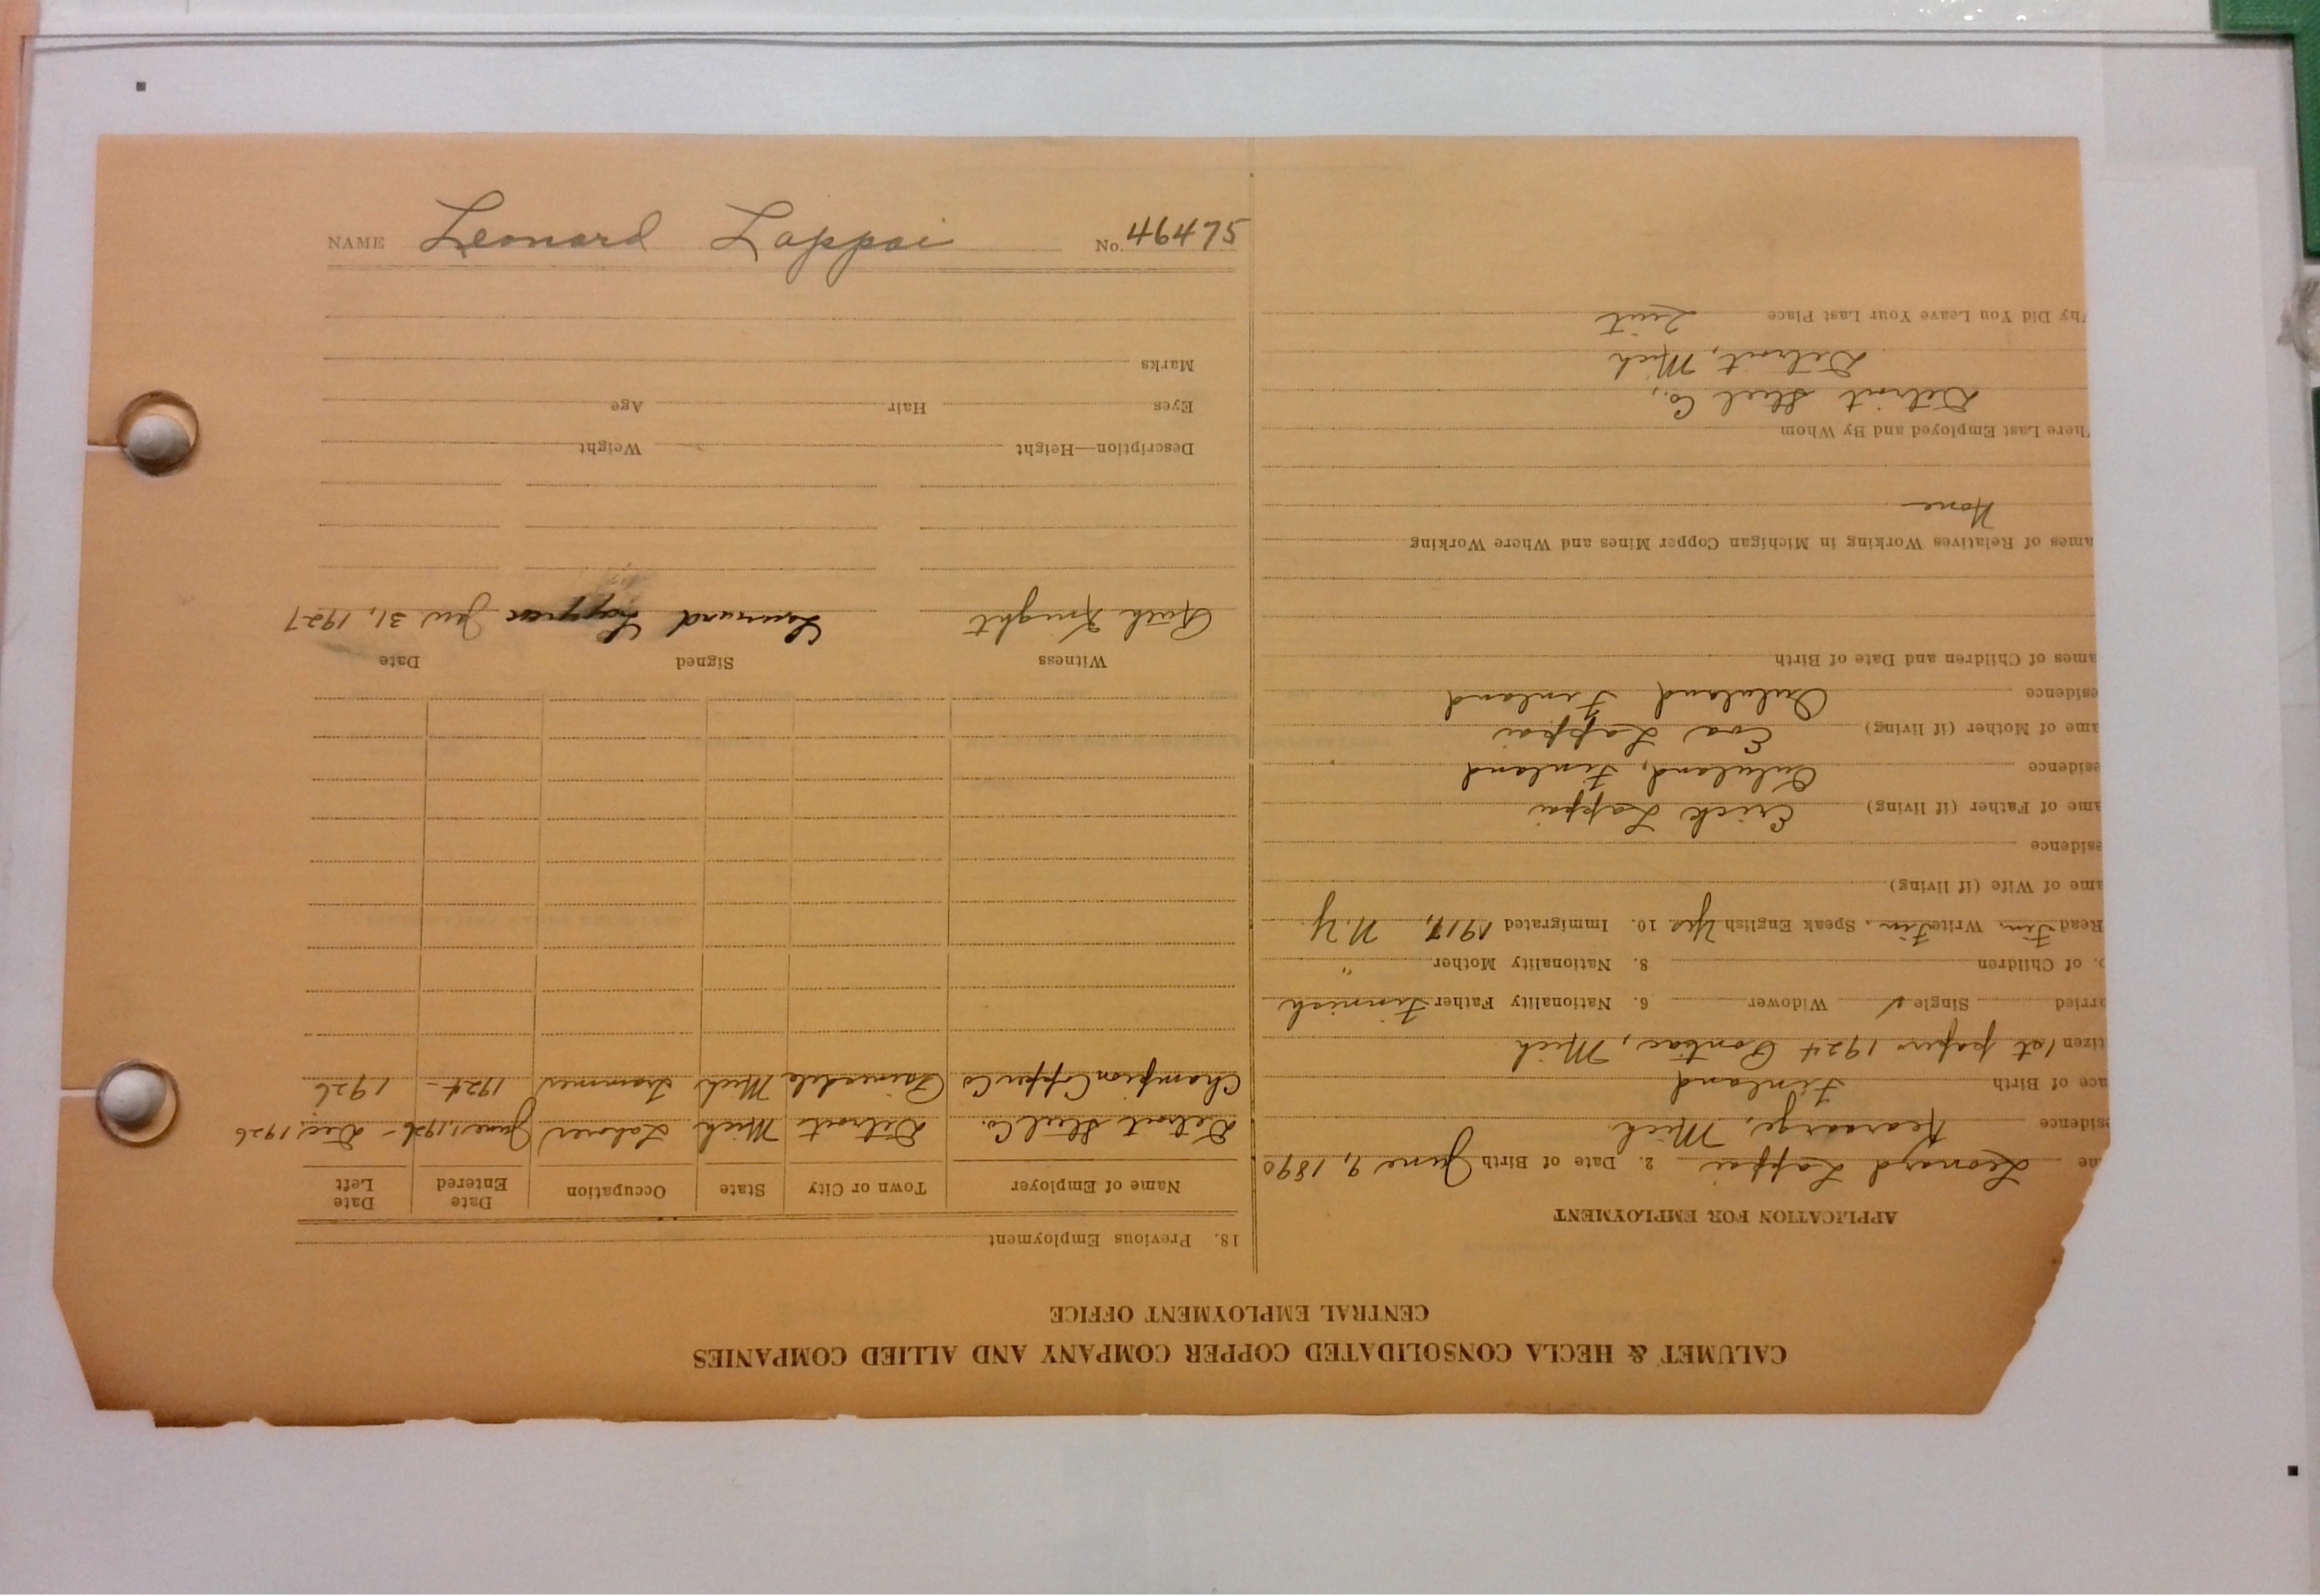 NAME Leonard Lappai No. 46475
CALUMET & HECLA CONSOLIDATED COPPER COMPANY AND ALLIED COMPANIES
CENTRAL EMPLOYMENT OFFICE
APPLICATION FOR EMPLOYMENT
me Leonard Lappai 2. Date of Birth June 9, 1890
esidence Kearsarge, Mich.
ace of Birth Finland
tizen 1st papers 1924 Pontiac, Mich
arried Single ✓ Widower 6. Nationality Father Finnish
o. of Children 8. Nationality Mother "
Read Fin. Write Fin. Speak English Yes 10. Immigrated 1917, N.Y.
ame of Wife (if living)
esidence
ame of Father (if living) Erick Lappai
esidence Oululand, Finland
ame of Mother (if living) Eva Lappai
esidence Oululand Finland
ames of Children and Date of Birth
ames of Relatives Working in Michigan Copper Mines and Where Working
None
here Last Employed and By Whom
Detroit Steel Co.,
Detroit, Mich
hy Did You Leave Your Last Place Quit
18. Previous Employment
Name of Employer Town or City State Occupation Date Entered Date Left
Detroit Steel Co. Detroit Mich. Laborer June 1, 1926 - Dec. 1926
Champion Copper Co Painesdale Mich Trammer 1924 - 1926
Witness Signed Date
Ruth Knight Leonard Lappai Jan 31, 1927
Description—Height Weight
Eyes Hair Age
Marks